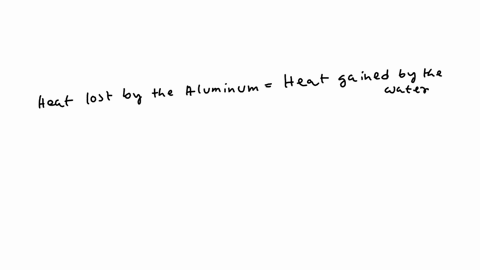 Heat lost by the Aluminum = Heat gained by the
water